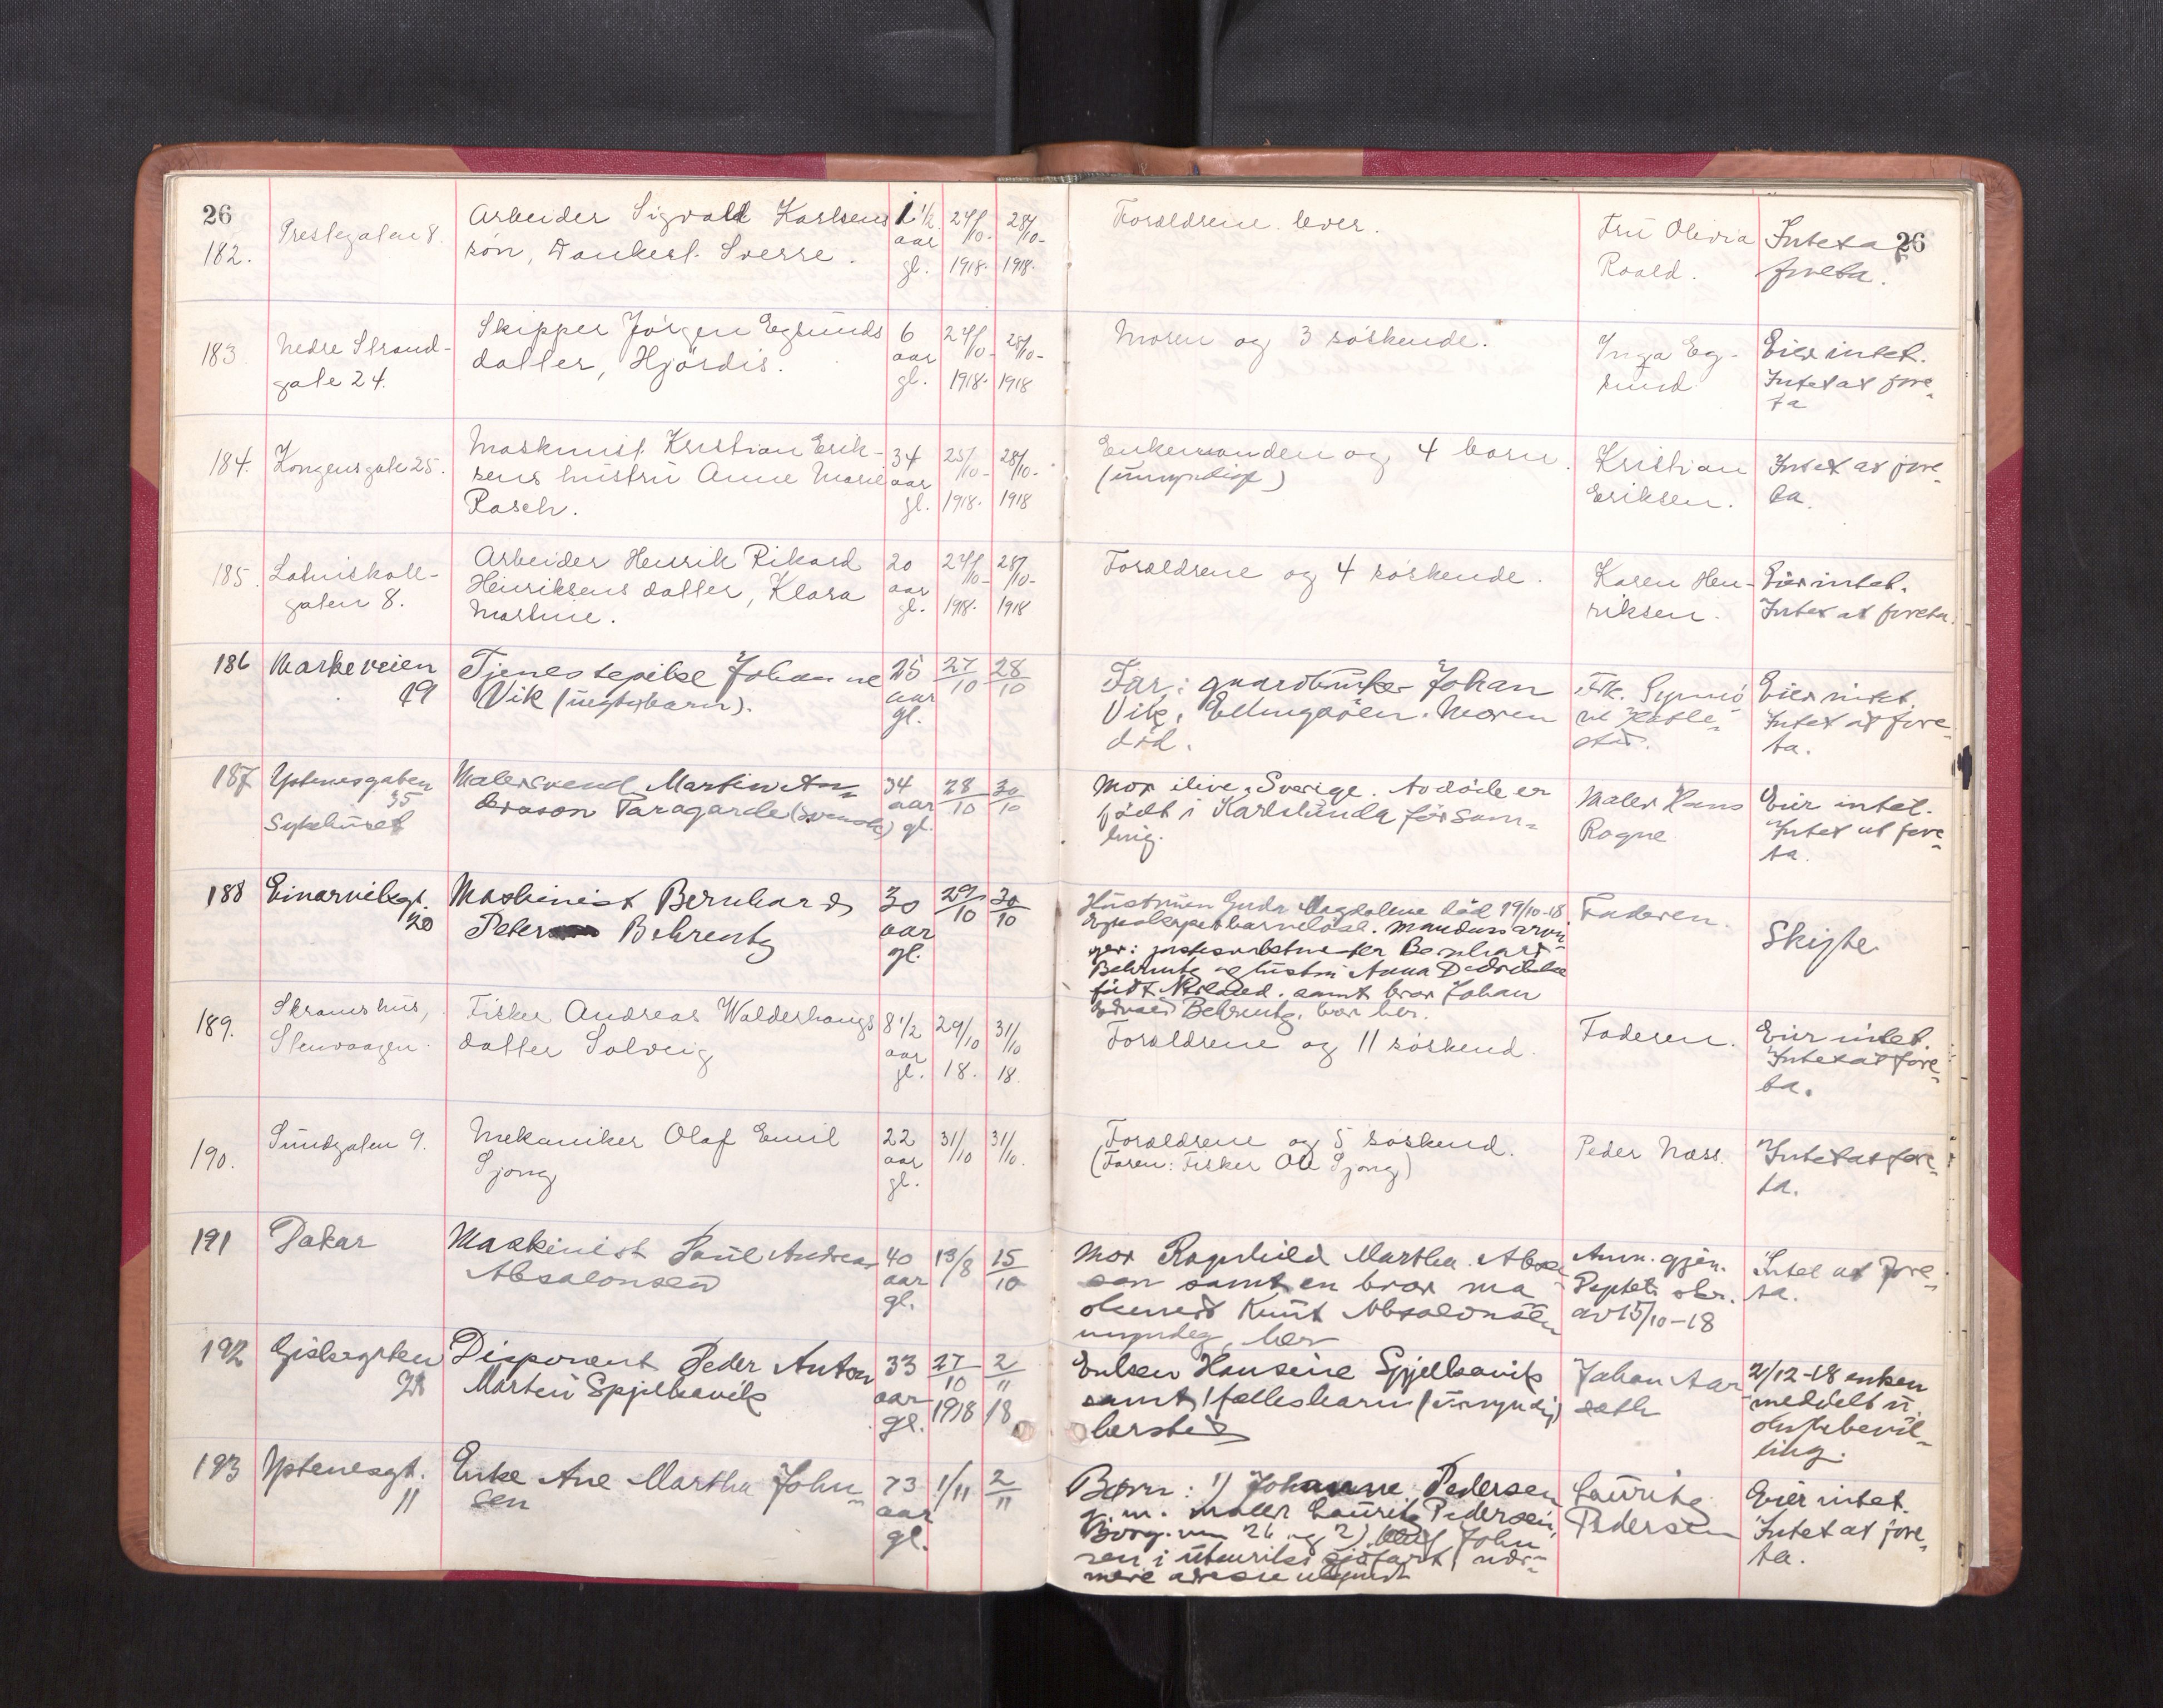 26
26
182.
Prestegaten 8.
Arbeider Sigvald Karlsens
søn, Dankert Sverre.
1 1/2
aar
gl.
24/10-
1918.
28/10-
1918.
Forældrene lever.
Fru Olivia
Roald.
Intet a
foreta.
183
Nedre Strand-
gate 24.
Skipper Jörgen Egsunds
datter, Hjördis.
6
aar
gl.
24/10-
1918.
28/10-
1918
Moren og 3 söskende.
Inga Eg-
sund
Eier intet.
Intet at fore-
ta
184.
Kongensgate 25.
Maskinist Kristian Erik-
sens hustru Anne Marie
Rasch.
34
aar
gl.
25/10-
1918.
28/10-
1918
Enkemanden og 4 barn.
(umyndige)
Kristian
Eriksen.
Intet at fore-
ta.
185.
Latinskole-
gaten 8.
Arbeider Henrik Rikard
Henriksens datter, Klara
Martine.
20
aar
gl.
24/10-
1918.
28/10-
1918
Forældrene og 4 söskende.
Karen Hen-
riksen.
Eier intet.
Intet at foreta.
186
Parkeveien
19
Tjenestepike Johanne
Vik (uegte barn).
25
aar
gl.
27/10
28/10
Far: gaardbruker Johan
Vik, Ellingsöen. Moren
död.
Frk.
Eier intet.
Intet at fore-
ta.
187
Ystenesgaten
35
Sykehuset
Malersvend Martin An-
derson Paragarde (svensk)
34
aar
gl.
28/10
30/10
Mor ilive, Sverige. Avdöde er
födt i Karlslunda försam-
ling.
Maler Hans
Rogne
Eier intet.
Intet at fore-
ta.
188
Einarviksgt.
20
Maskinist Bernhard
Peter Behrentz
30
aar
gl.
29/10
30/10
Hustruen Guda Magdalene död 19/10-18
Egteskapet barnelöst. Mandens arvin-
ger: Bernhard
Behrentz og hustru Anna
födt samt bror Johan
Edvard Behrentz, bor her.
Faderen.
Skifte
189.
Skramshus,
Stenvaagen.
Fisker Andreas Walderhaugs
datter Solveig
8 1/2
aar
gl.
29/10
18.
31/10
18.
Forældrene og 11 söskend.
Faderen.
Eier intet.
Intet at fore-
ta.
190.
Sundgaten 9.
Mekaniker Olaf Emil
Sjong
22
aar
gl.
31/10
31/10.
Forældrene og 5 söskend.
(Faren: Fisker Ole Sjong)
Peder Næss.
Intet at fore-
ta.
191
Dakar
Maskinist Paul Andreas
Absalonsen
40
aar
gl.
13/8
15/10
Mor Ragnhild Martha Absa
sen samt en bror
Knut Absalonsen
umyndig, her
Anm. gjen.
skr.
av 15/10-18
Intet at fore-
ta.
192
Gisksgaten
21
Disponent Peder Anton
Martin Spjelkavik
33
aar
gl.
27/10
1918
2/11
18
Enken Hansine Spjelkavik
samt 1 fellesbarn (umyndig)
hersteds
Johan Aar-
seth
2/12-18 enken
meddelt u.
skiftebevil-
ling.
193
Ystenesgt.
11
Enke Ane Martha John-
sen
73
aar
gl.
1/11
2/11
Barn: 1) Johanne Pedersen
g. m. maler Lauritz Pedersen,
26 og 2) John
sen i utenriks sjöfart, nær-
mere adresse ukjendt
Lauritz
Pedersen
Eier intet.
Intet at fore-
ta.